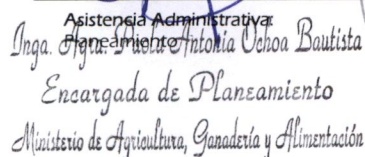 Asistencia Administrativa
Planeamiento
Inga. Agra. Paola Antonia Ochoa Bautista
Encargada de Planeamiento
Ministerio de Agricultura, Ganadería y Alimentación